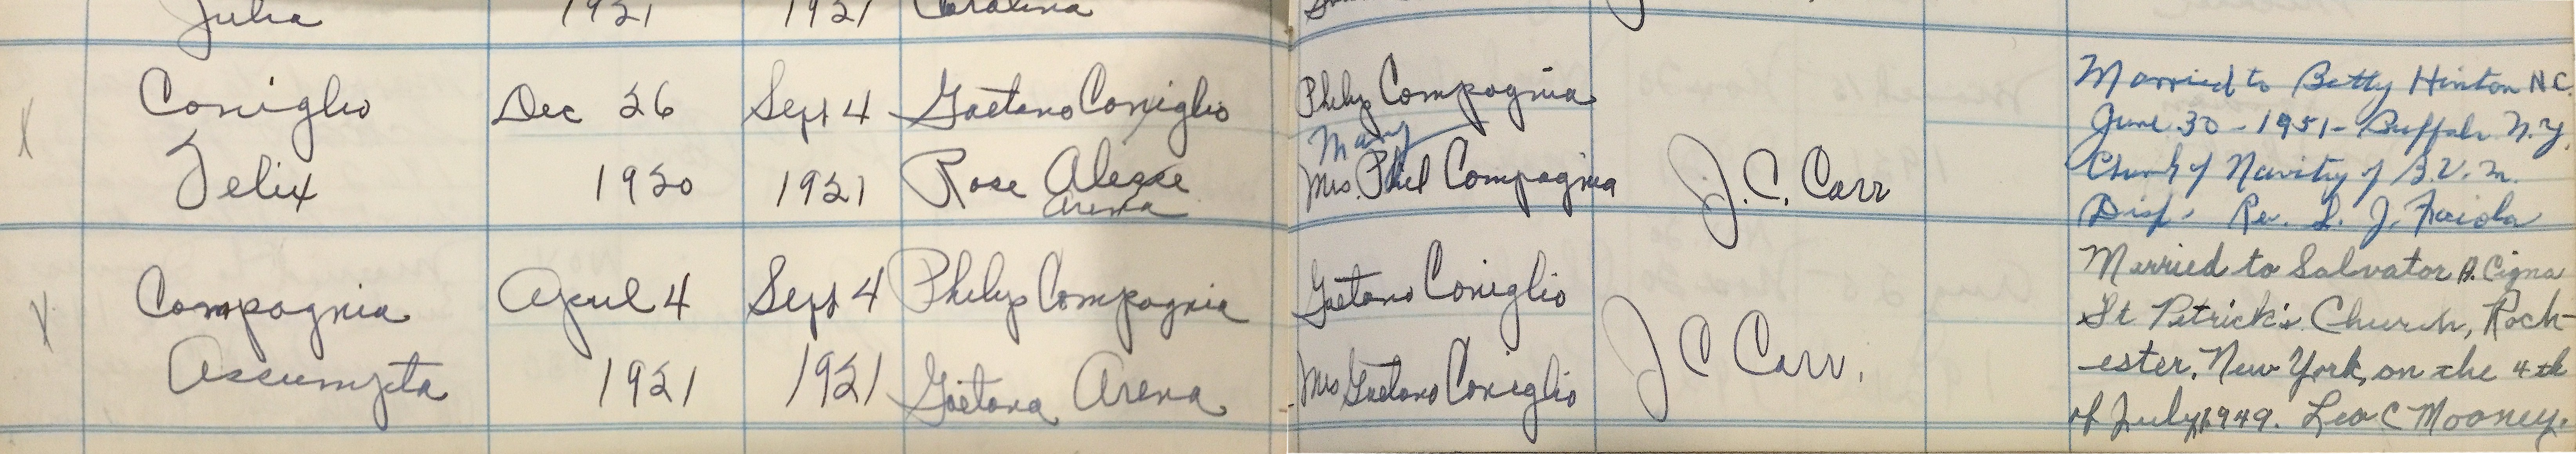 Julia 1921 1921 Carolina
Coniglio Dec 26 Sept 4 Gaetano Coniglio Philip Compagnia Married to Betty Hinton N.C.
Mary June 30 - 1951 - Buffalo N.Y.
Felix 1920 1921 Rose Alesse Mrs. Phil Compagnia J. C. Carr Church of Navity of B.V.M.
Arena Disp. Rev. L. J.
Compagnia April 4 Sept 4 Philip Compagnia Gaetano Coniglio Married to Salvator A. Cigna
St Patrick's Church, Roch-
Assumpta 1921 1921 Gaetana Arena Mrs Gaetano Coniglio J C Carr. -ester, New York, on the 4th
of July, 1949. Leo C Mooney.